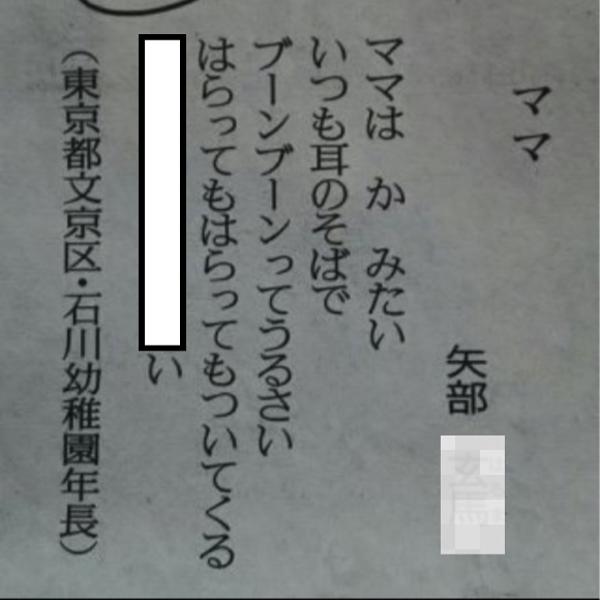 ママ
矢部
ママは か みたい
いつも耳のそばで
ブーンブーンってうるさい
はらってもはらってもついてくる
い
（東京都文京区・石川幼稚園年長）